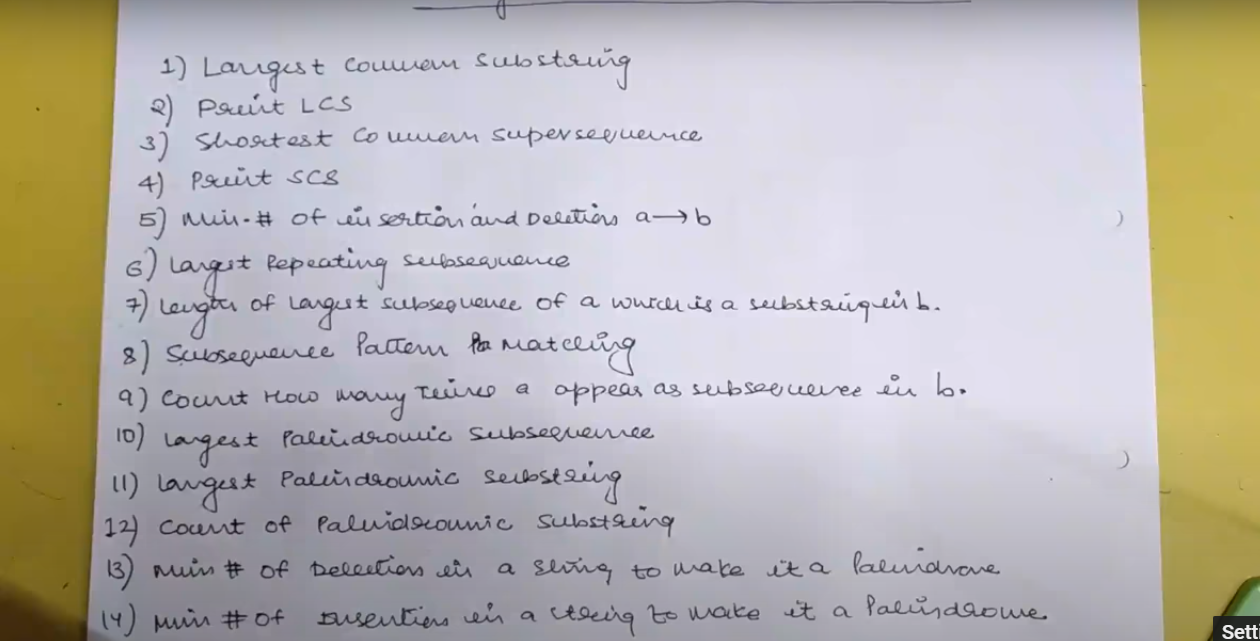 1) Largest Common Substring
2) Print LCS
3) Shortest Common Supersequence
4) Print SCS
5) Min. # of insertion and Deletions a → b
6) Largest Repeating Subsequence
7) Length of Largest subsequence of a which is a substring in b.
8) Subsequence Pattern Matching
9) Count How many Times a appear as subsequence in b.
10) Largest Palindromic Subsequence
11) Largest Palindromic Substring
12) Count of Palindromic Substring
13) Min # of Deletion in a string to make it a Palindrome
14) Min # of Insertion in a string to make it a Palindrome
Sett